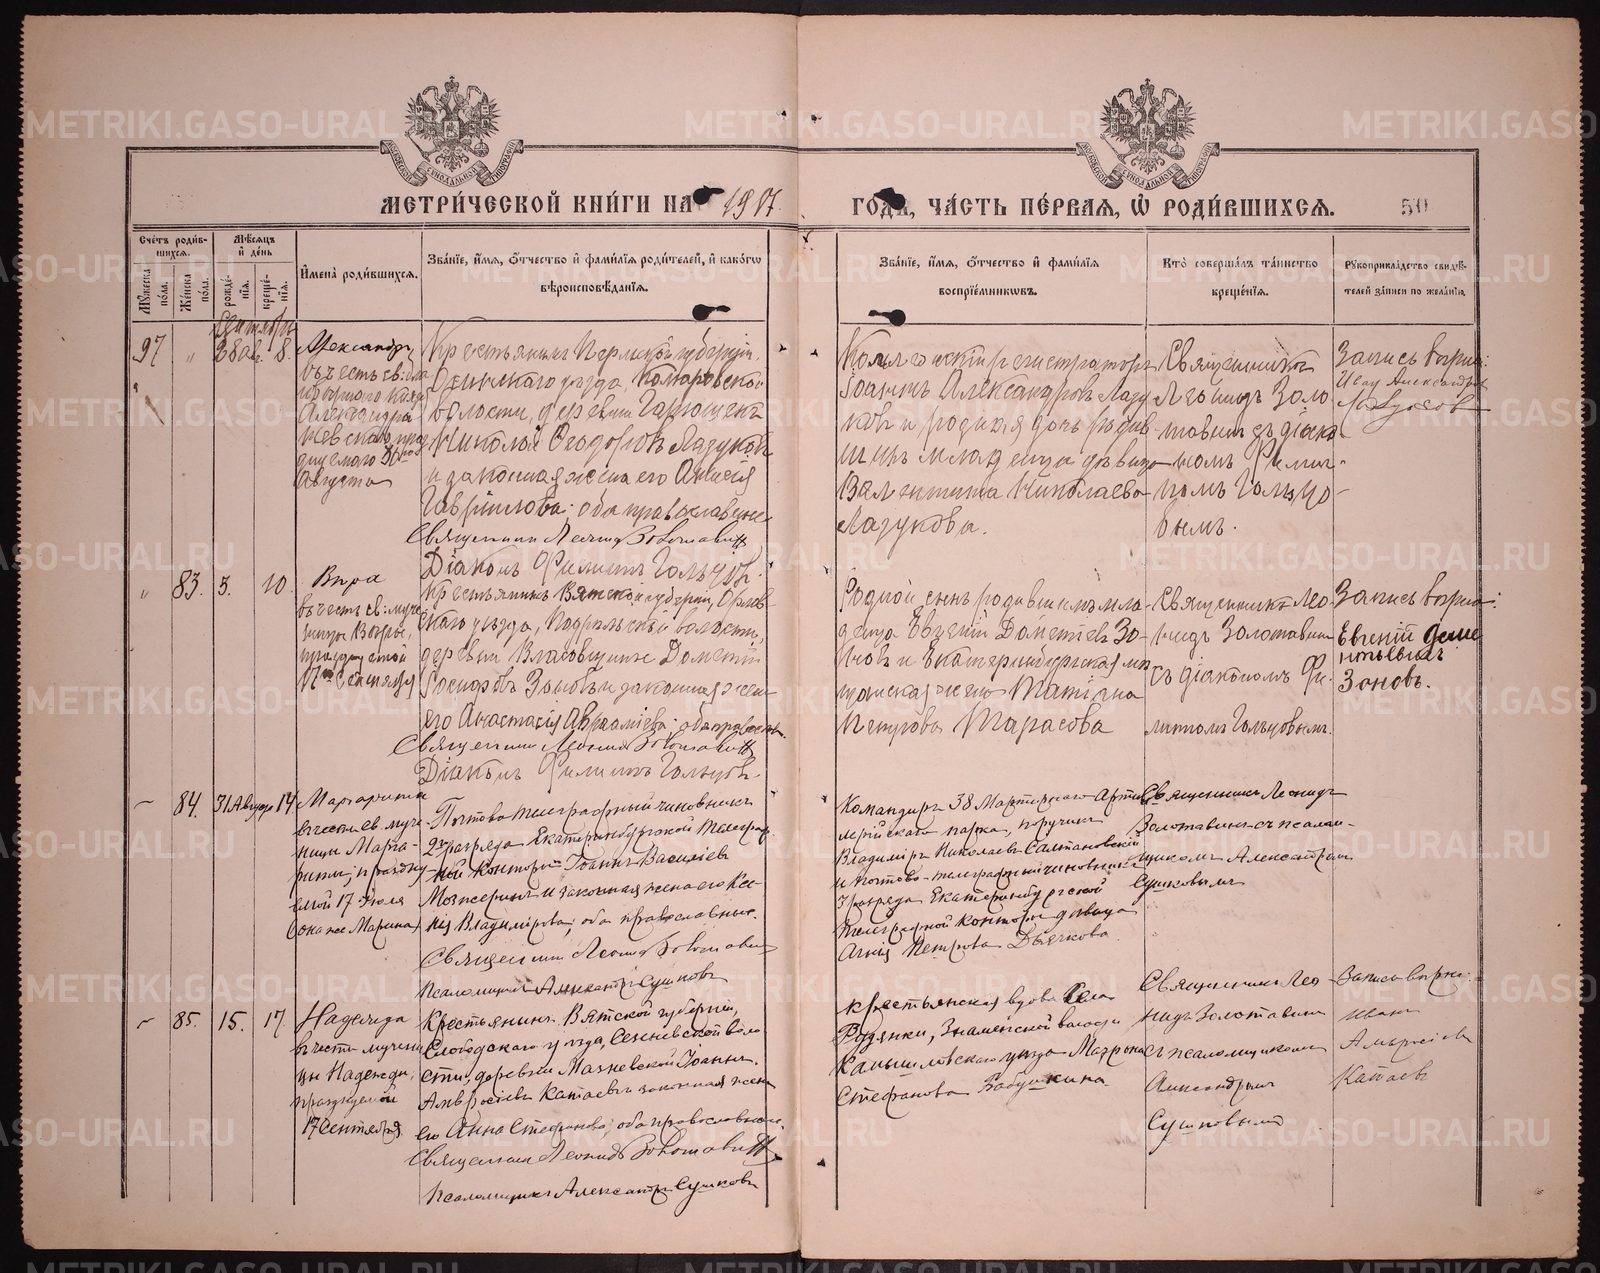 МЕТРИ́ЧЕСКОЙ КНИ́ГИ НА 1917
ГОДЪ, ЧА́СТЬ ПЕ́РВАЯ, Ѡ РОДИ́ВШИХСЯ.
50
Сче́тъ роди́в-
шихся.
Му́жеска по́ла.
Же́нска по́ла.
Мѣ́сяцъ и де́нь
рожде́-
нїя.
креще́-
нїя.
И҆мена̀ роди́вшихся.
Зва́нїе, и҆́мя, ѻ҆́тчество и҆ фами́лїя роди́телей, и҆ како́гѡ
вѣроисповѣ́данїя.
Зва́нїе, и҆́мя, ѻ҆́тчество и҆ фами́лїя
воспрїе́мниковъ.
Кто̀ соверша́лъ та́инство
креще́нїя.
Рꙋкоприкла́дство свидѣ́-
телей за́писи по жела́нїю.
Сентябрь
97 " 28 авг. 8.
Александръ
въ честь св: бла
Александра
Невскаго празд
днуемаго 30го
Августа
Крестьянинъ Пермской губерніи,
Осинскаго уѣзда, Комаровской
волости, деревни
Николай Ѳеодоровъ Лазуковъ
и законная жена его Анисія
Гавріилова; оба православные
Священникъ Леонидъ Золотавинъ
Діаконъ Филиппъ Гольцовъ.
Коллежскій регистраторъ
Іоаннъ Александровъ Лазу
ковъ и родная дочь родив
шихъ младенца дѣвица
Валентина Николаева
Лазукова.
Священникъ
Леонидъ Золо-
тавинъ съ діако
номъ Филип-
помъ Гольцо-
вымъ.
Запись вѣрна:
Иван Александров
Лазуков
" 83. 5. 10.
Вѣра
въ честь св: муче
ницы Вѣры,
празднуемой
17го Сентября
Крестьянинъ Вятской губерніи, Орлов
скаго уѣзда, волости,
деревни Власовщины Дометій
Іосифовъ Зоновъ и законная жена
его Анастасія Авраміева; оба православн.
Священникъ Леонидъ Золотавинъ
Діаконъ Филиппъ Гольцовъ.
Родной сынъ родившихъ мла
денца Евгеній Дометіевъ Зо-
новъ и Екатеринбургская мѣ
щанская жена Татіана
Петрова Тарасова
Священникъ Лео-
нидъ Золотавинъ
съ діакономъ Фи-
липпомъ Гольцовымъ.
Запись вѣрна:
Евгеній Деме
нтьевичъ
Зоновъ.
84. 31 Августа 14
Маргарита
въ честь св. муче
ницы Марга-
риты, празdну
емой 17 Іюля
(она же Марина)
Почтово-телеграфный чиновникъ
2го разряда Екатеринбургской телеграф
ной конторы Іоаннъ Василіевъ
Мозжеринъ и законная жена его Ксе-
нія Владимірова; оба православные.
Священникъ Леонидъ Золотавинъ
Псаломщикъ Александръ Сушковъ
Командиръ 38 Мортирнаго Артил
лерійскаго парка, поручикъ
Владиміръ Николаевъ Салтановскій
и почтово-телеграфный чиновникъ
3 разряда Екатеринбургской
телеграфной конторы дѣвица
Агнія Петрова Дьячкова.
Священникъ Леонидъ
Золотавинъ съ псалом-
щикомъ Александромъ
Сушковымъ
85. 15. 17.
Надежда
въ честь мучени
цы Надежды,
празднуемой
17 Сентября
Крестьянинъ Вятской губерніи,
Слободскаго уѣзда, Сезеневской воло
сти, деревни Мазневской Іоаннъ
Амвросіевъ Катаевъ законная жена
его Анна Стефанова; оба православные.
Священникъ Леонидъ Золотавинъ
Псаломщикъ Александръ Сушковъ
Крестьянская вдова Села
Рудянки, Знаменской волости
Камышловскаго уѣзда Матрона
Стефанова Бабушкина
Священникъ Лео
нидъ Золотавинъ
съ псаломщикомъ
Александромъ
Сушковымъ
Запись вѣрна:
Иванъ
Амбросіевъ
Катаевъ
METRIKI.GASO-URAL.RU